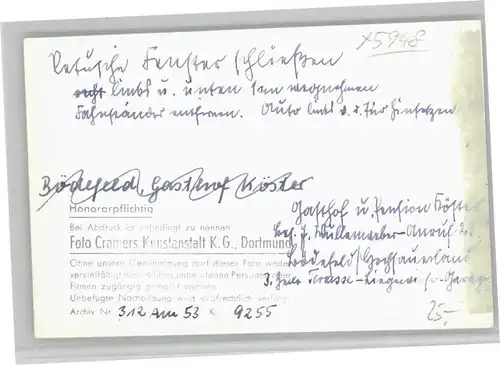 x5948
Retusche Fenster schließen
links u. unten 1cm wegnehmen
Fahrständer entfernen. Auto links v. d. Tür hinsetzen
Bödefeld, Gasthof Köster
Honorarpflichtig
Bei Abdruck ist unbedingt zu nennen
Foto Cramers Kunstanstalt K.G., Dortmund
Ohne unsere Genehmigung darf dieses Foto weder
vervielfältigt noch dritten, unbeteiligten Personen oder
Firmen zugängig gemacht werden.
Unbefugte Nachbildung wird strafrechtlich verfolgt
Archiv Nr. 312 Am 53 K 9255
Gasthof u. Pension Köster
Bes. J.
Bödefeld/Hochsauerland
Terrasse - Liegewiese - Garage
25.-